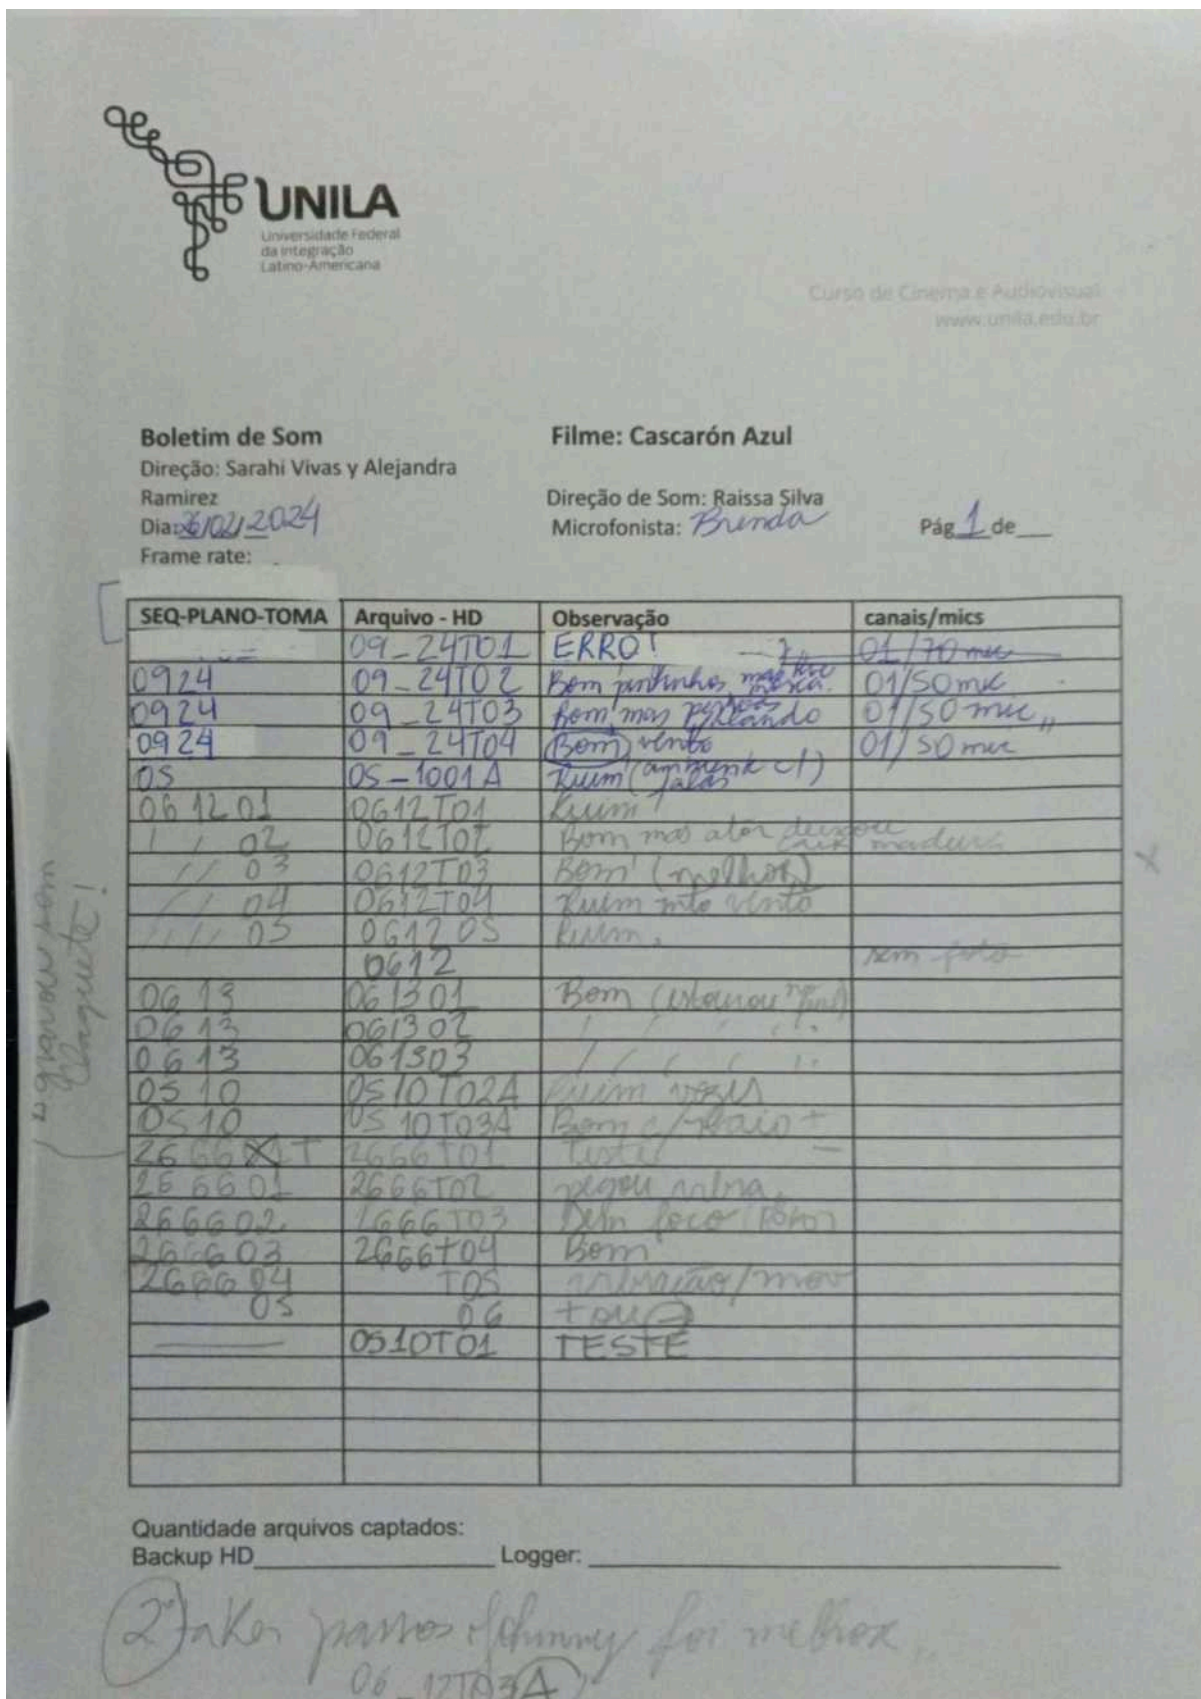 UNILA
Universidade Federal
da Integração
Latino-Americana
Curso de Cinema e Audiovisual
www.unila.edu.br
Boletim de Som
Filme: Cascarón Azul
Direção: Sarahi Vivas y Alejandra
Ramirez
Direção de Som: Raissa Silva
Dia: 26/02/2024
Microfonista: Brenda
Pág 1 de
Frame rate:
SEQ-PLANO-TOMA Arquivo - HD Observação canais/mics
09_24T01 ERRO! 01/70 mic
0924 09_24T02 Bom pintinhos, 01/50 mic
0924 09_24T03 Bom, mas 01/50 mic
0924 09_24T04 Bom, vento 01/50 mic
05 05-1001A Ruim (ambiente c/ falas)
06 12 01 0612T01 Ruim
// 02 0612T02 Bom mas ator deixou cair madeira
// 03 0612T03 Bom! (melhor)
// 04 0612T04 Ruim mto vento
//// 05 061205 Ruim.
0612 sem foto
06 13 061301 Bom (estourou no final)
06 13 061302
06 13 061303
0510 0510T02A Ruim vozes
0510 0510T03A Bom
2666 T 2666T01 Teste
266601 2666T02 pegou
266602 2666T03 Sem foco
266603 2666T04 Bom
266604 T05 vibração/mov
05 06
0510T01 TESTE
gravou som
Claquete!
Quantidade arquivos captados:
Backup HD Logger:
2º takes passos Johnny foi melhor
06_12T03A